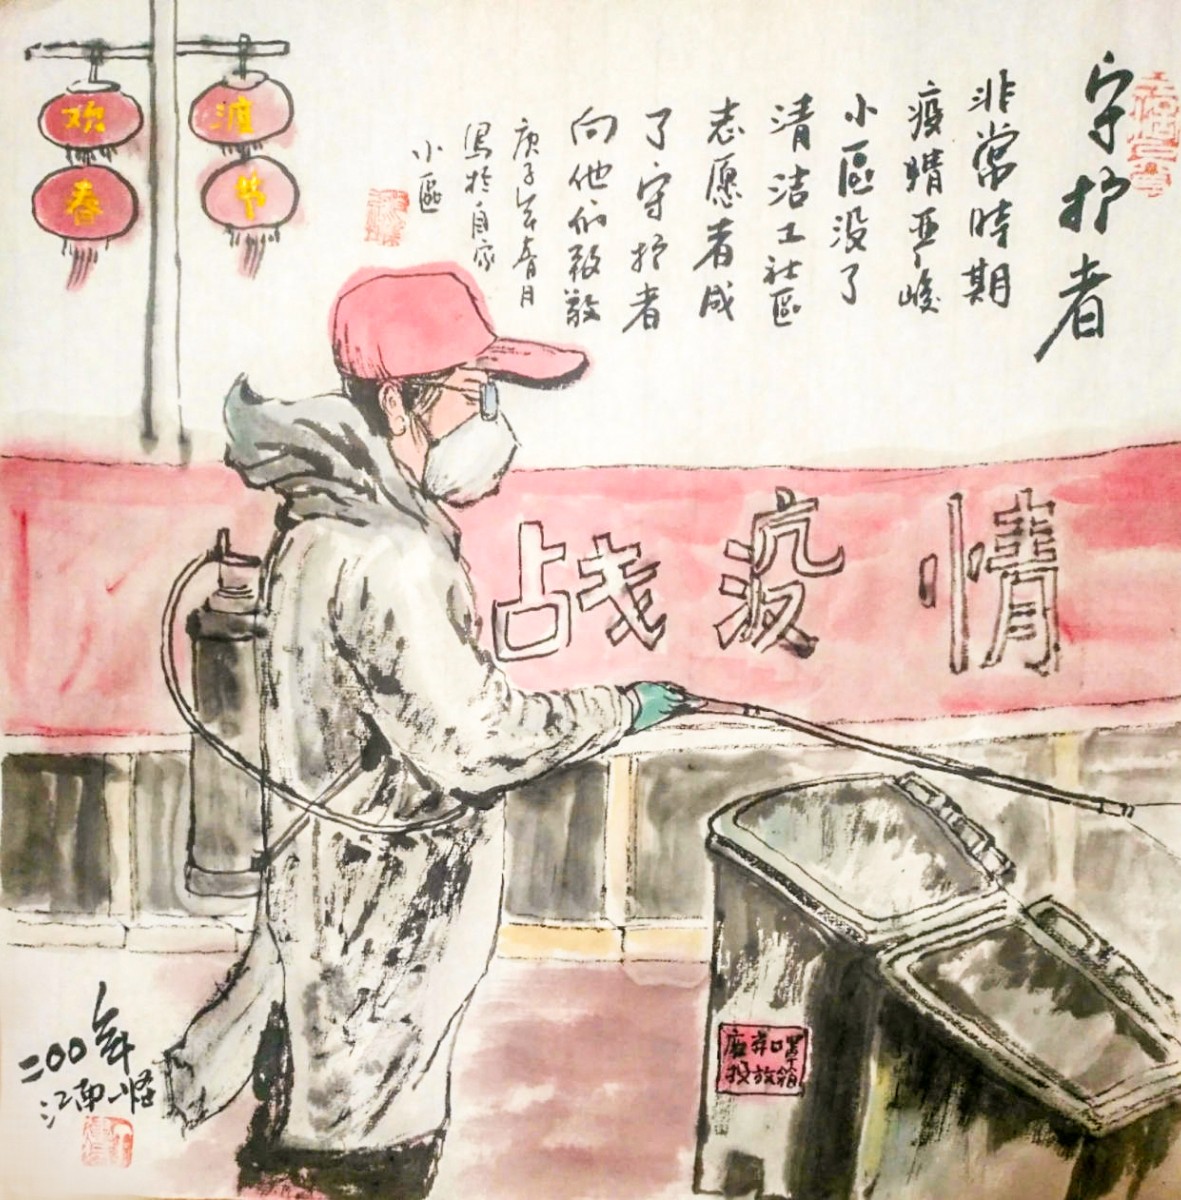 守护者
非常時期
疫情严峻
小區没了
清洁工社區
志愿者成
了守护者
向他们致敬
庚子年春月
寫於自家
小區
欢渡
春节
战疫情
废弃口罩
投放箱
二00年
江南一怪